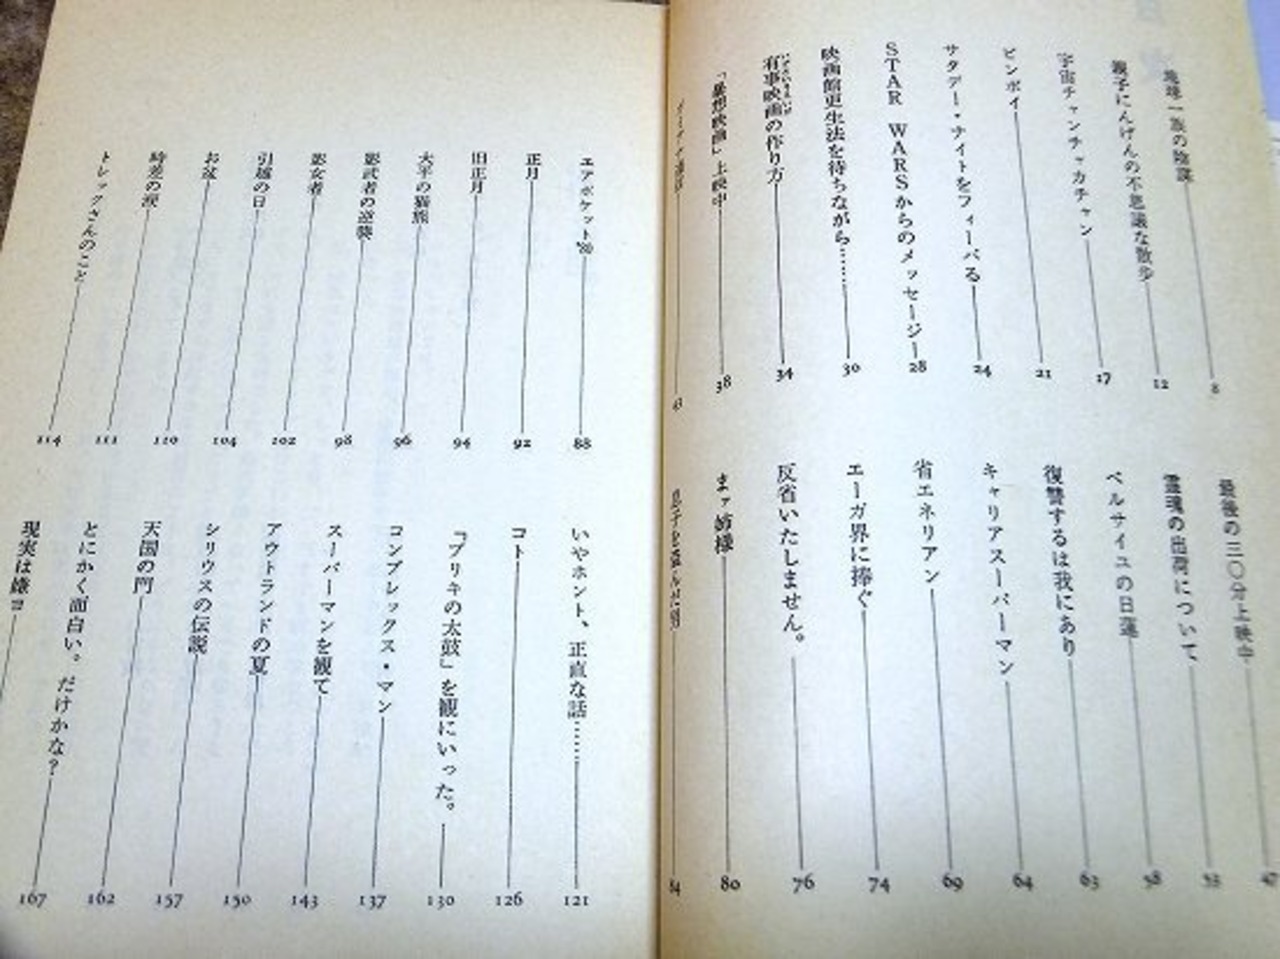 目次
一族の陰謀 8
親子にんげんの不思議な散歩 12
宇宙チャンチャカチャン 17
ピンボイ 21
サタデー・ナイトをフィーバる 24
STAR WARSからのメッセージ 28
映画館更生法を待ちながら…… 30
有事映画の作り方 34
「暴想映画」上映中 38
43
最後の三〇分上映中 47
霊魂の出荷について 53
ベルサイユの日蓮 58
復讐するは我にあり 63
キャリアスーパーマン 64
省エネリアン 69
エーガ界に捧ぐ 74
反省いたしません。 76
まァ姉様 80
84
エアポケット'80 88
正月 92
旧正月 94
大平の猫熊 96
影武者の逆襲 98
影女者 102
引越の日 104
お盆 110
時差の涙 111
トレッグさんのこと 114
いやホント、正直な話…… 121
コト 126
「ブリキの太鼓」を観にいった。 130
コンプレックス・マン 137
スーパーマンを観て 143
アウトランドの夏 150
シリウスの伝説 157
天国の門 162
とにかく面白い。だけかな? 167
現実は嫌ヨ